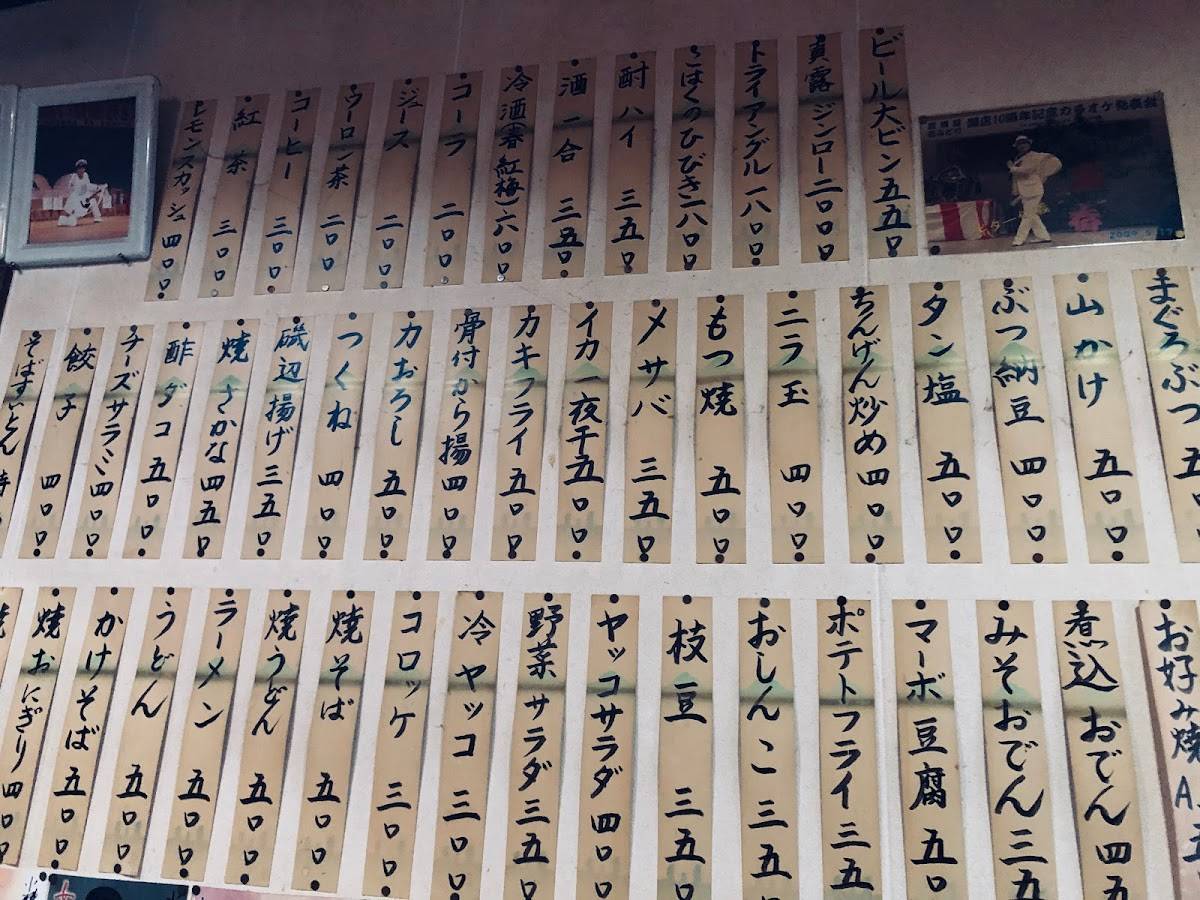 ビール大ビン 五五〇
真露ジンロー 二〇〇〇
トライアングル 一八〇〇
こはくのひびき 一八〇〇
酎ハイ 三五〇
酒一合 三五〇
冷酒(春紅梅) 六〇〇
コーラ 二〇〇
ジュース 二〇〇
ウーロン茶 二〇〇
コーヒー 三〇〇
紅茶 三〇〇
レモンスカッシュ 四〇〇
開店10周年記念カラオケ発表会
まぐろぶつ 五
山かけ 五〇〇
ぶつ納豆 四〇〇
タン塩 五〇〇
ちんげん炒め 四〇〇
ニラ玉 四〇〇
もつ焼 五〇〇
メサバ 三五〇
イカ一夜干 五〇〇
カキフライ 五〇〇
骨付から揚 四〇〇
力おろし 五〇〇
つくね 四〇〇
磯辺揚げ 三五〇
焼さかな 四五〇
酢ダコ 五〇〇
チーズサラミ 四〇〇
餃子 四〇〇
そばすいとん
お好み焼A
煮込おでん 四五
みそおでん 三五
マーボ豆腐 五〇
ポテトフライ 三五
おしんこ 三五〇
枝豆 三五〇
ヤッコサラダ 四〇〇
野菜サラダ 三五〇
冷ヤッコ 三〇〇
コロッケ 三〇〇
焼そば 五〇〇
焼うどん 五〇〇
ラーメン 五〇〇
うどん 五〇〇
かけそば 五〇〇
焼おにぎり 四〇〇